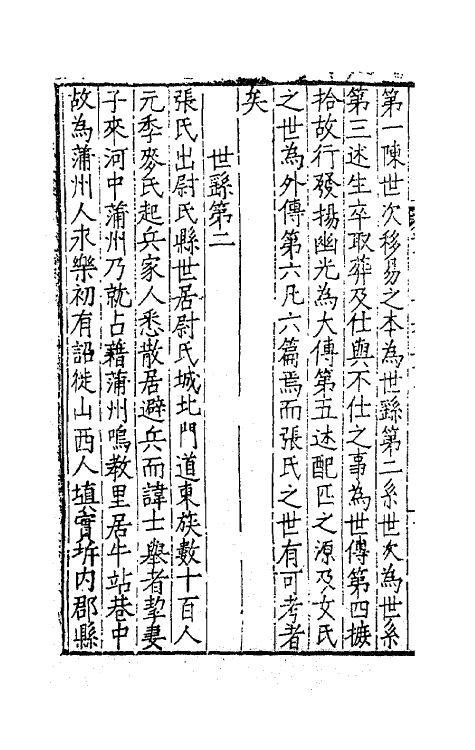 第一陳世次移易之本為世繇第二系世次為世系
第三述生卒取葬及仕與不仕之事為世傳第四摭
拾故行發揚幽光為大傳第五述配匹之源及女氏
之世為外傳第六凡六篇焉而張氏之世有可考者
矣
世繇第二
張氏出尉氏縣世居尉氏城北門道東族數十百人
元季麥氏起兵家人悉散居避兵而諱士舉者挈妻
子來河中蒲州乃就占藉蒲州鳴教里居牛站巷中
故為蒲州人永樂初有詔徙山西人填實圻内郡縣